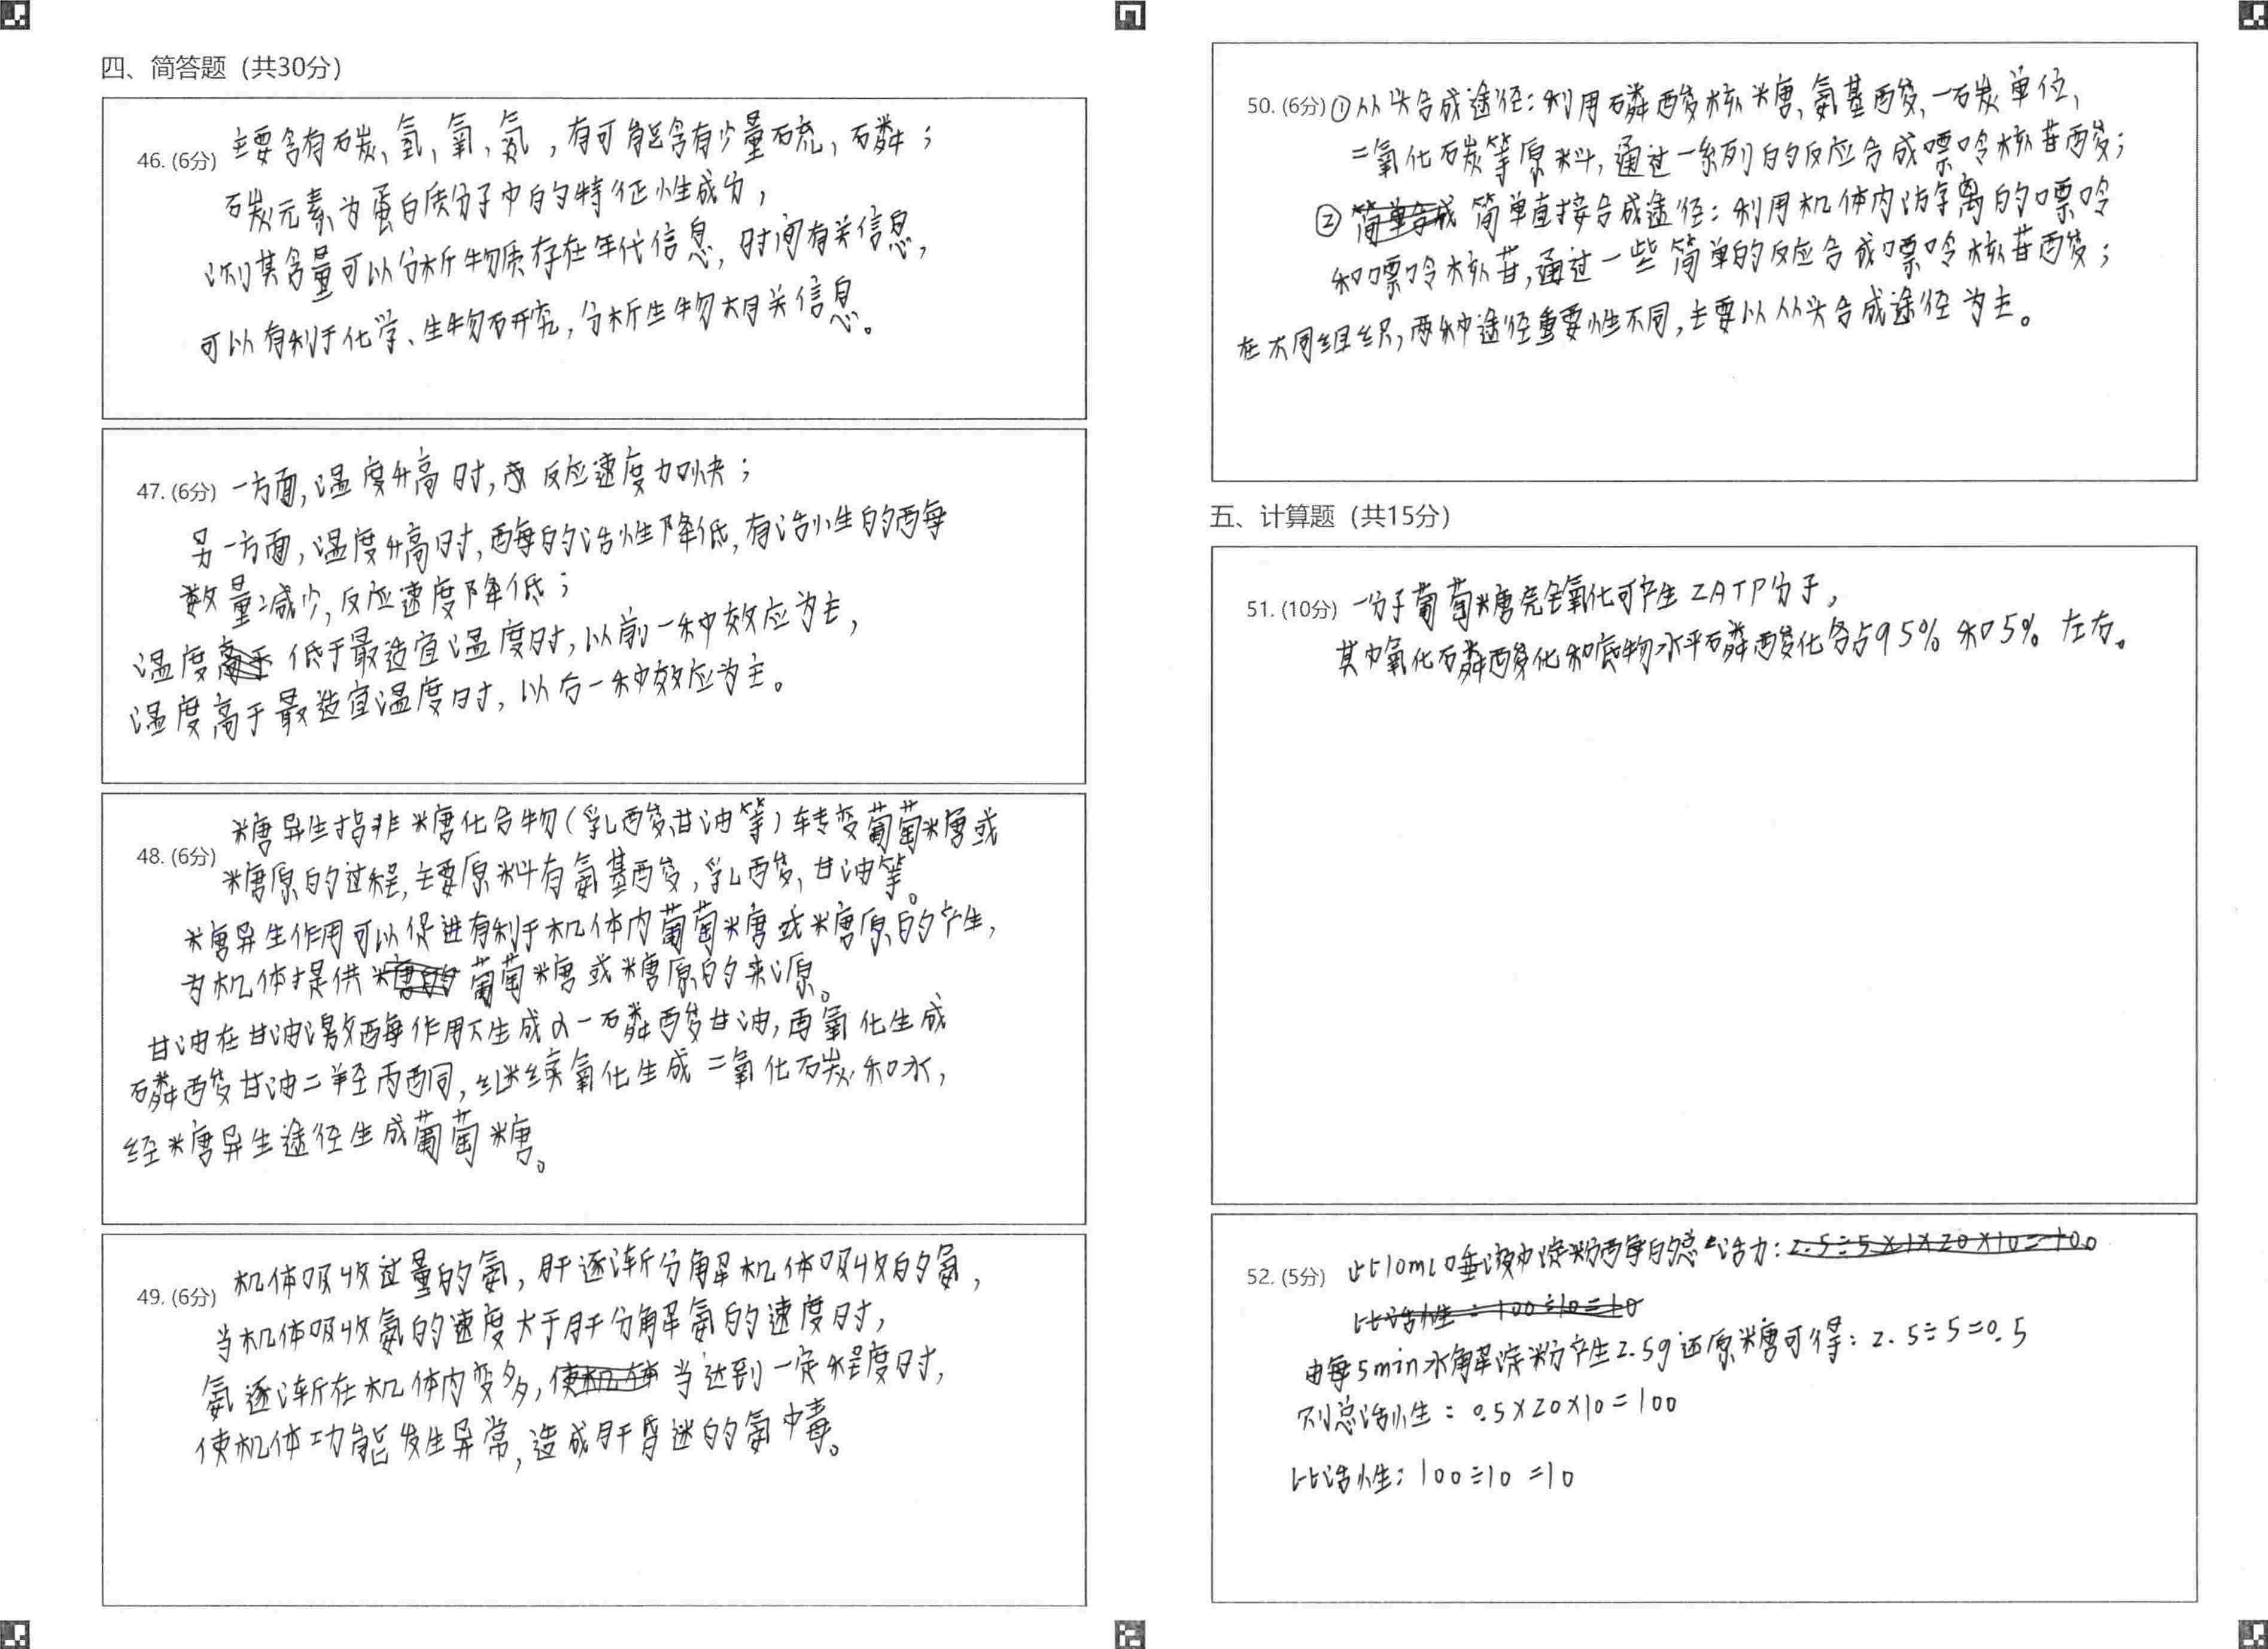 四、简答题（共30分）
46. (6分) 主要含有碳、氢、氧、氮，有可能含有少量硫、磷；
碳元素为蛋白质分子中的特征性成分，
测其含量可以分析物质存在年代信息，时间有关信息，
可以有利于化学、生物研究，分析生物相关信息。
47. (6分) 一方面，温度升高时，反应速度加快；
另一方面，温度升高时，酶的活性降低，有活性的酶
数量减少，反应速度降低；
温度低于最适宜温度时，以前一种效应为主，
温度高于最适宜温度时，以后一种效应为主。
48. (6分) 糖异生指非糖化合物（乳酸、甘油等）转变葡萄糖或
糖原的过程，主要原料有氨基酸，乳酸，甘油等。
糖异生作用可以促进有利于机体内葡萄糖或糖原的产生，
为机体提供葡萄糖或糖原的来源。
甘油在甘油激酶作用下生成α-磷酸甘油，再氧化生成
磷酸甘油二羟丙酮，继续氧化生成二氧化碳和水，
经糖异生途径生成葡萄糖。
49. (6分) 机体吸收过量的氨，肝逐渐分解机体吸收的氨，
当机体吸收氨的速度大于肝分解氨的速度时，
氨逐渐在机体内变多，当达到一定程度时，
使机体功能发生异常，造成肝昏迷的氨中毒。
50. (6分) ①从头合成途径：利用磷酸核糖、氨基酸、一碳单位、
二氧化碳等原料，通过一系列的反应合成嘌呤核苷酸；
② 简单直接合成途径：利用机体内游离的嘌呤
和嘌呤核苷，通过一些简单的反应合成嘌呤核苷酸；
在不同组织，两种途径重要性不同，主要以从头合成途径为主。
五、计算题（共15分）
51. (10分) 一分子葡萄糖完全氧化可产生2ATP分子，
其中氧化磷酸化和底物水平磷酸化各占95%和5%左右。
52. (5分) 此10ml唾液中淀粉酶的总活力：2.5÷5×1×20×10=100
比活性：100÷10=10
由每5min水解淀粉产生2.5g还原糖可得：2.5÷5=0.5
则总活性：0.5×20×10=100
比活性：100÷10=10